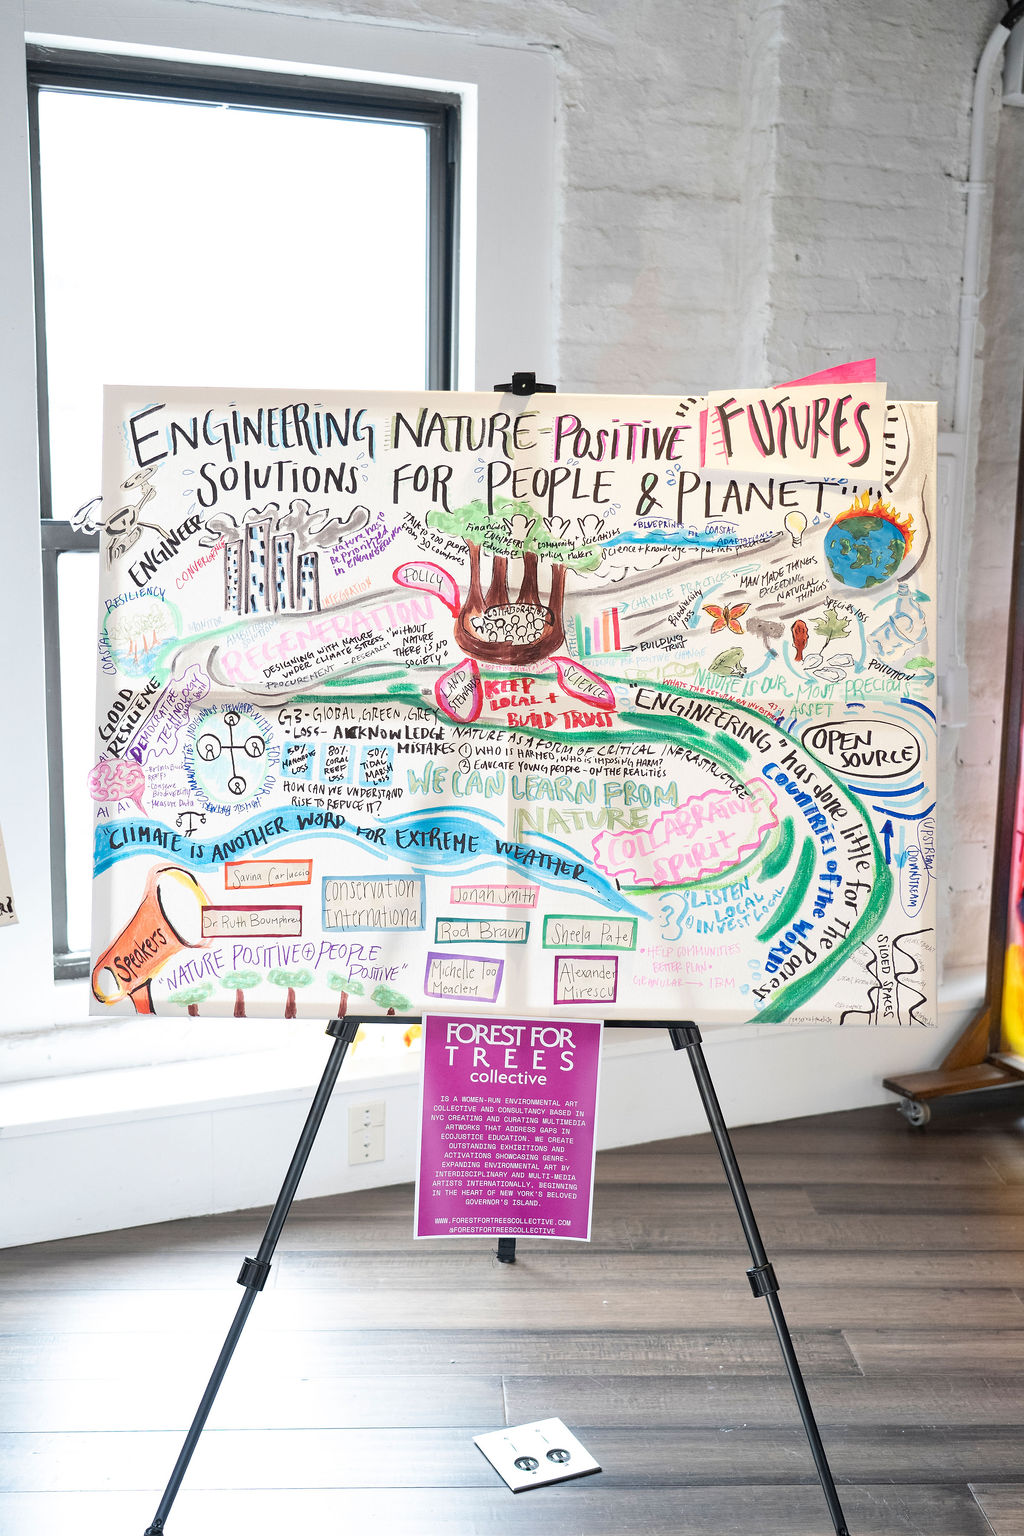 ENGINEERING NATURE-POSITIVE FUTURES
SOLUTIONS FOR PEOPLE & PLANET"
ENGINEER
CONVERGENCE
Nature has to
be prioritized
in engineering
TALK TO 200 people
from 30 countries
Financiers
ENGINEERS
Educators
Community
Scientists
policy makers
"BLUEPRINTS FOR COASTAL
ADAPTATIONS"
Science + knowledge → put into practice
COASTAL
RESILIENCY
MONITOR
INTEGRATION
POLICY
COLLABORATION
REGENERATION
DESIGNING WITH NATURE
UNDER CLIMATE STRESS
PROCUREMENT - RESEARCH
"WITHOUT
NATURE
THERE IS NO
SOCIETY"
CHANGE PRACTICES
→ BUILDING
TRUST
EVIDENCE FOR POSITIVE CHANGE
Biodiversity
"MAN MADE THINGS
EXCEEDING
NATURAL
THINGS"
SPECIES LOSS
POLLUTION
NATURE IS OUR MOST PRECIOUS
ASSET
WHAT'S THE RETURN ON INVESTMENT
LAND
STEWARDS
KEEP
LOCAL +
BUILD TRUST
SCIENCE
GOOD
RESILIENCE
DEMOCRATIZE
TECHNOLOGY
AI AI
- Measure Data
G3 - GLOBAL, GREEN, GREY
• LOSS - ACKNOWLEDGE
MISTAKES
NATURE AS A FORM OF CRITICAL INFRASTRUCTURE
① WHO IS HARMED, WHO IS IMPOSING HARM?
② EDUCATE YOUNG PEOPLE - ON THE REALITIES
50%
MANGROVE
LOSS
80%
CORAL
REEF
LOSS
50%
TIDAL
MARSH
LOSS
HOW CAN WE UNDERSTAND
RISK TO REDUCE IT?
WE CAN LEARN FROM
NATURE
COLLABRATIVE
SPIRIT
"ENGINEERING" has done little for The Poorest
COUNTRIES of the WORLD
OPEN
SOURCE
UPSTREAM
DOWNSTREAM
"CLIMATE IS ANOTHER WORD FOR EXTREME WEATHER"
LISTEN
LOCAL
INVEST LOCAL
Speakers
Savina Carluccio
Dr Ruth Boumphrey
Conservation
International
Jonah Smith
Rod Braun
Sheela Patel
Michelle Too
Meaclem
Alexander
Mirescu
"NATURE POSITIVE + PEOPLE
POSITIVE"
• HELP COMMUNITIES
BETTER PLAN •
GRANULAR → IBM
SILOED SPACES
FOREST FOR
TREES
collective
IS A WOMEN-RUN ENVIRONMENTAL ART
COLLECTIVE AND CONSULTANCY BASED IN
NYC CREATING AND CURATING MULTIMEDIA
ARTWORKS THAT ADDRESS GAPS IN
ECOJUSTICE EDUCATION. WE CREATE
OUTSTANDING EXHIBITIONS AND
ACTIVATIONS SHOWCASING GENRE-
EXPANDING ENVIRONMENTAL ART BY
INTERDISCIPLINARY AND MULTI-MEDIA
ARTISTS INTERNATIONALLY, BEGINNING
IN THE HEART OF NEW YORK'S BELOVED
GOVERNOR'S ISLAND.
WWW.FORESTFORTREESCOLLECTIVE.COM
@FORESTFORTREESCOLLECTIVE